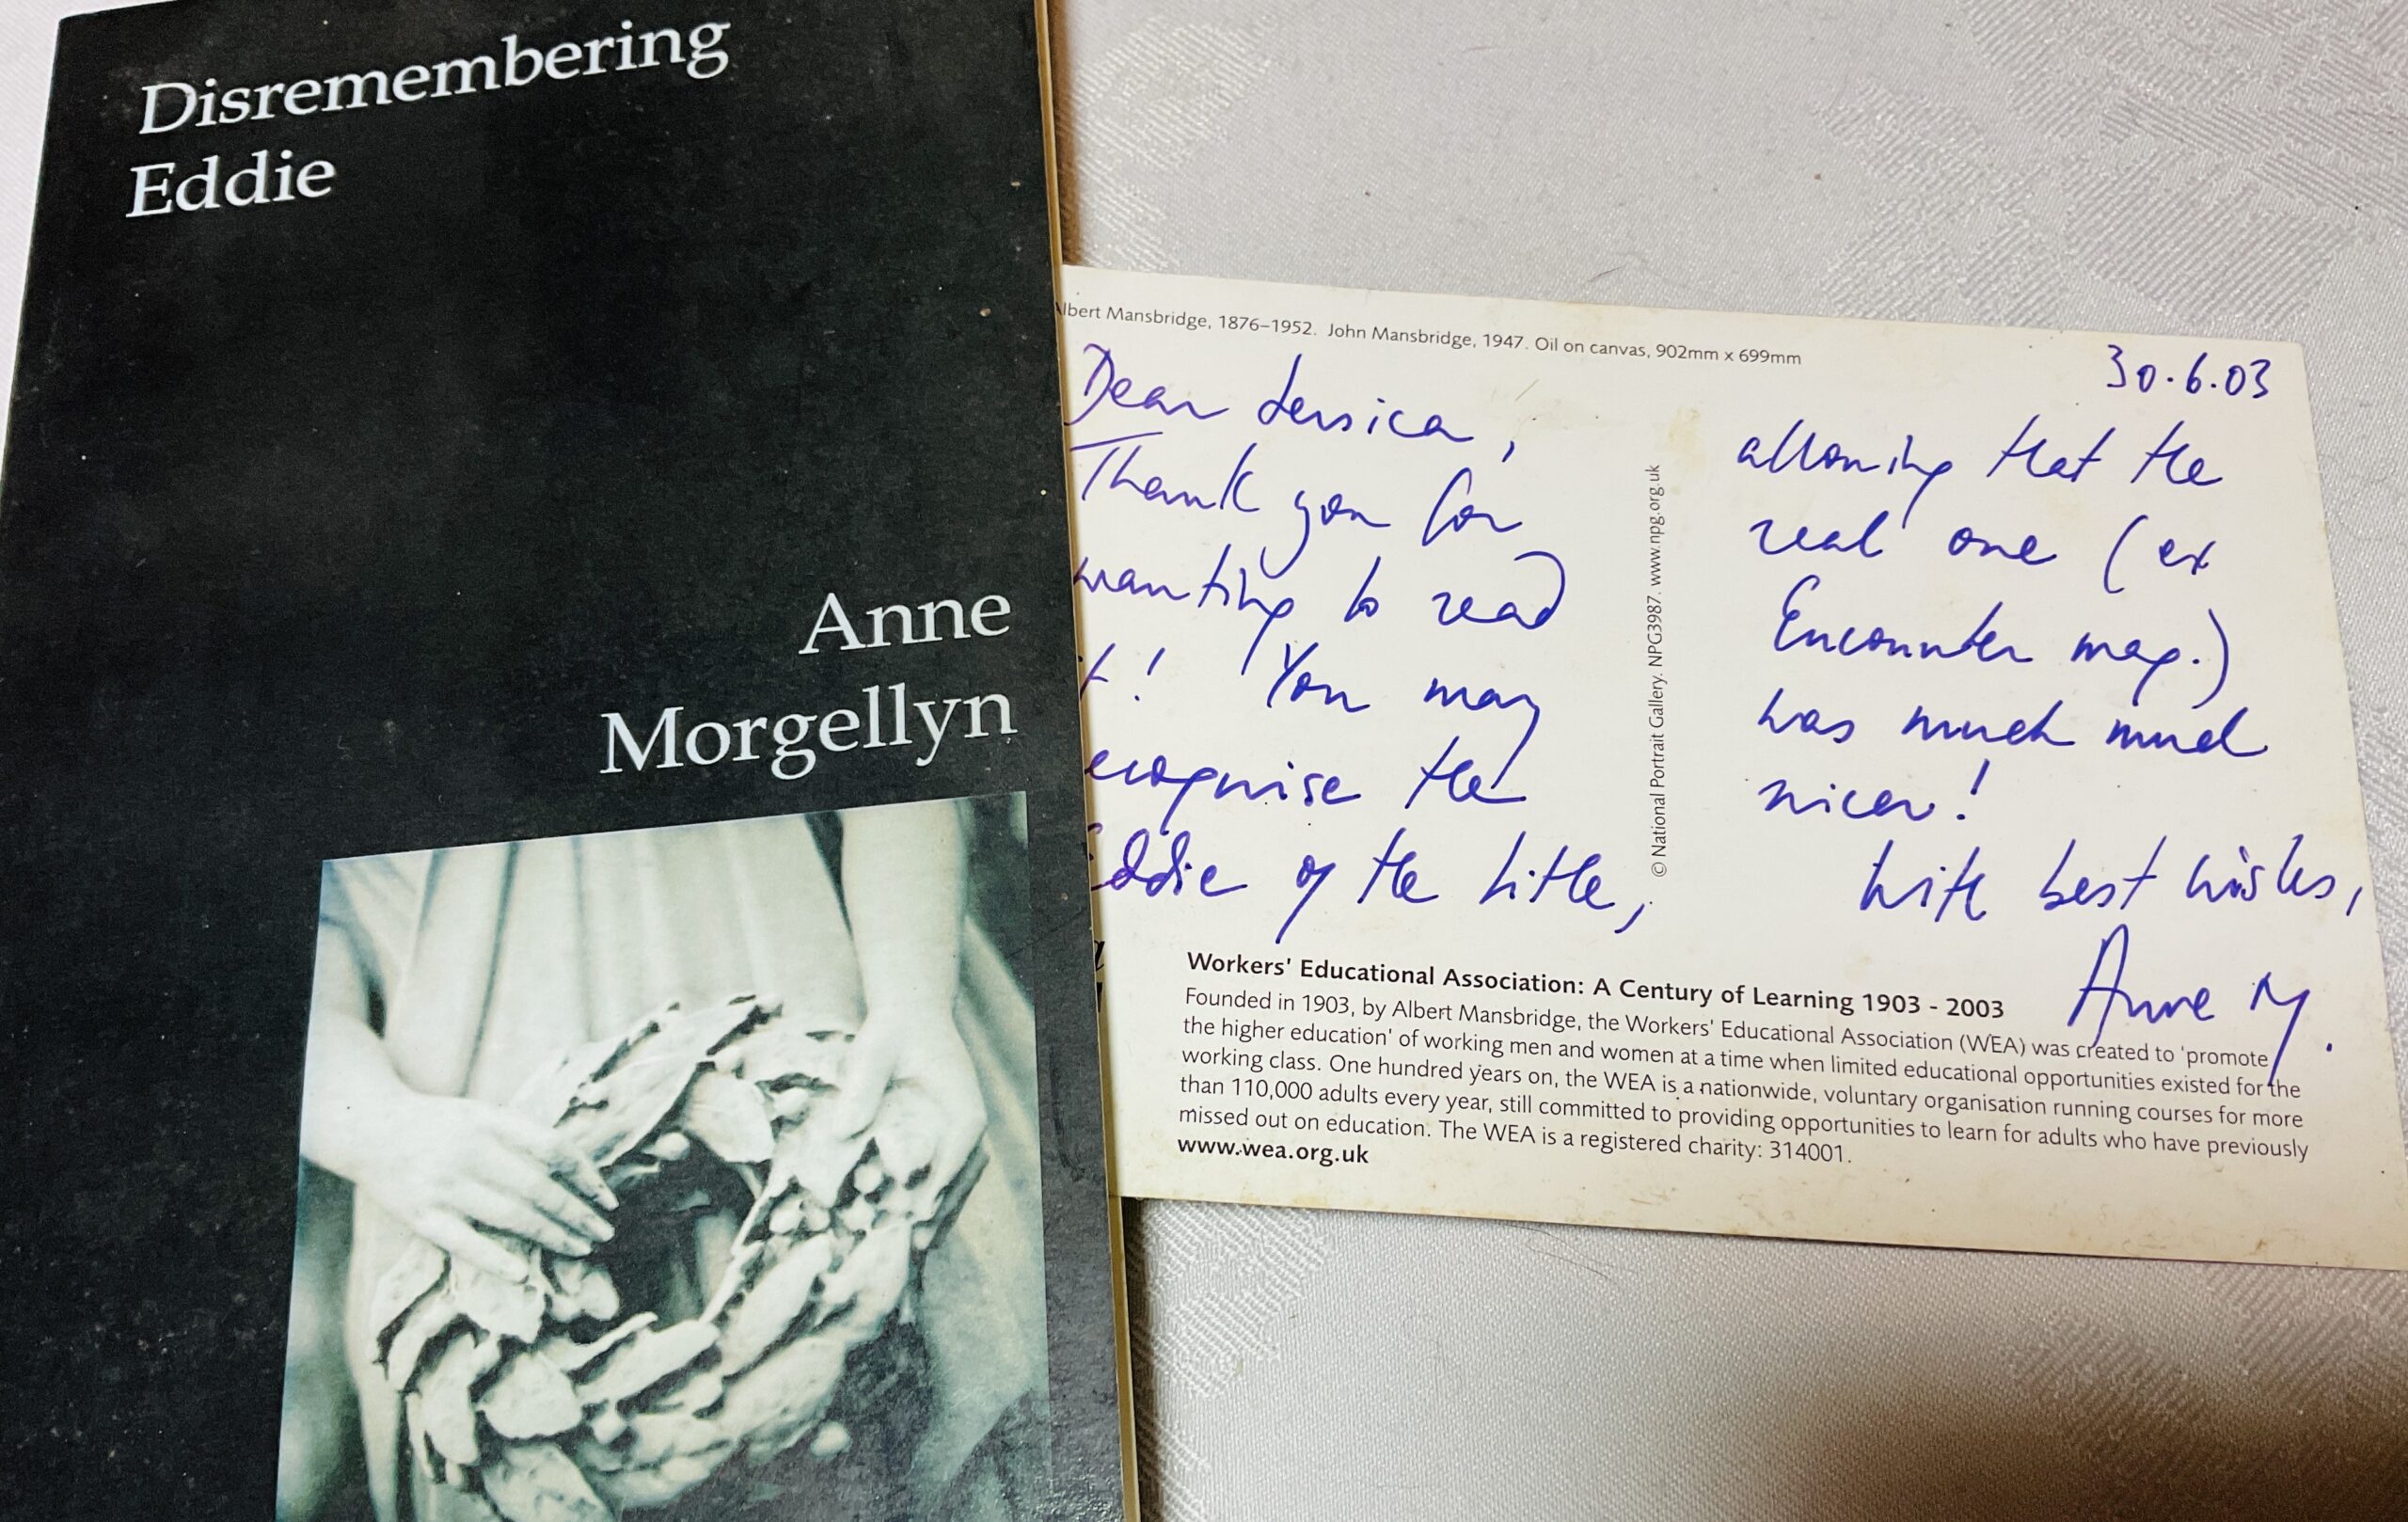 Disremembering
Eddie
Anne
Morgellyn
lbert Mansbridge, 1876–1952. John Mansbridge, 1947. Oil on canvas, 902mm x 699mm
30.6.03
Dear Jessica,
Thank you for
wanting to read
t! You may
ecognise the
Eddie of the title,
© National Portrait Gallery. NPG3987. www.npg.org.uk
allowing that the
real one (ex
Encounter mag.)
was much much
nicer!
With best wishes,
Anne M.
Workers' Educational Association: A Century of Learning 1903 - 2003
Founded in 1903, by Albert Mansbridge, the Workers' Educational Association (WEA) was created to 'promote
the higher education' of working men and women at a time when limited educational opportunities existed for the
working class. One hundred years on, the WEA is a nationwide, voluntary organisation running courses for more
than 110,000 adults every year, still committed to providing opportunities to learn for adults who have previously
missed out on education. The WEA is a registered charity: 314001.
www.wea.org.uk